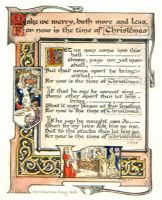 Make we merry, both more and less,
For now is the time of Christmas
Let no man come into this
hall
Groom, page nor yet mar-
shall
But that some sport he bring
withal,
For now is the time of Christmas.
If that he say he cannot sing
Some other sport then let him
bring
That it may please at the feasting
For now is the time of Christmas.
If he say he naught can do,
Then for my love ask him no
mo
But to the stocks then let him go,
For now is the time of Christmas